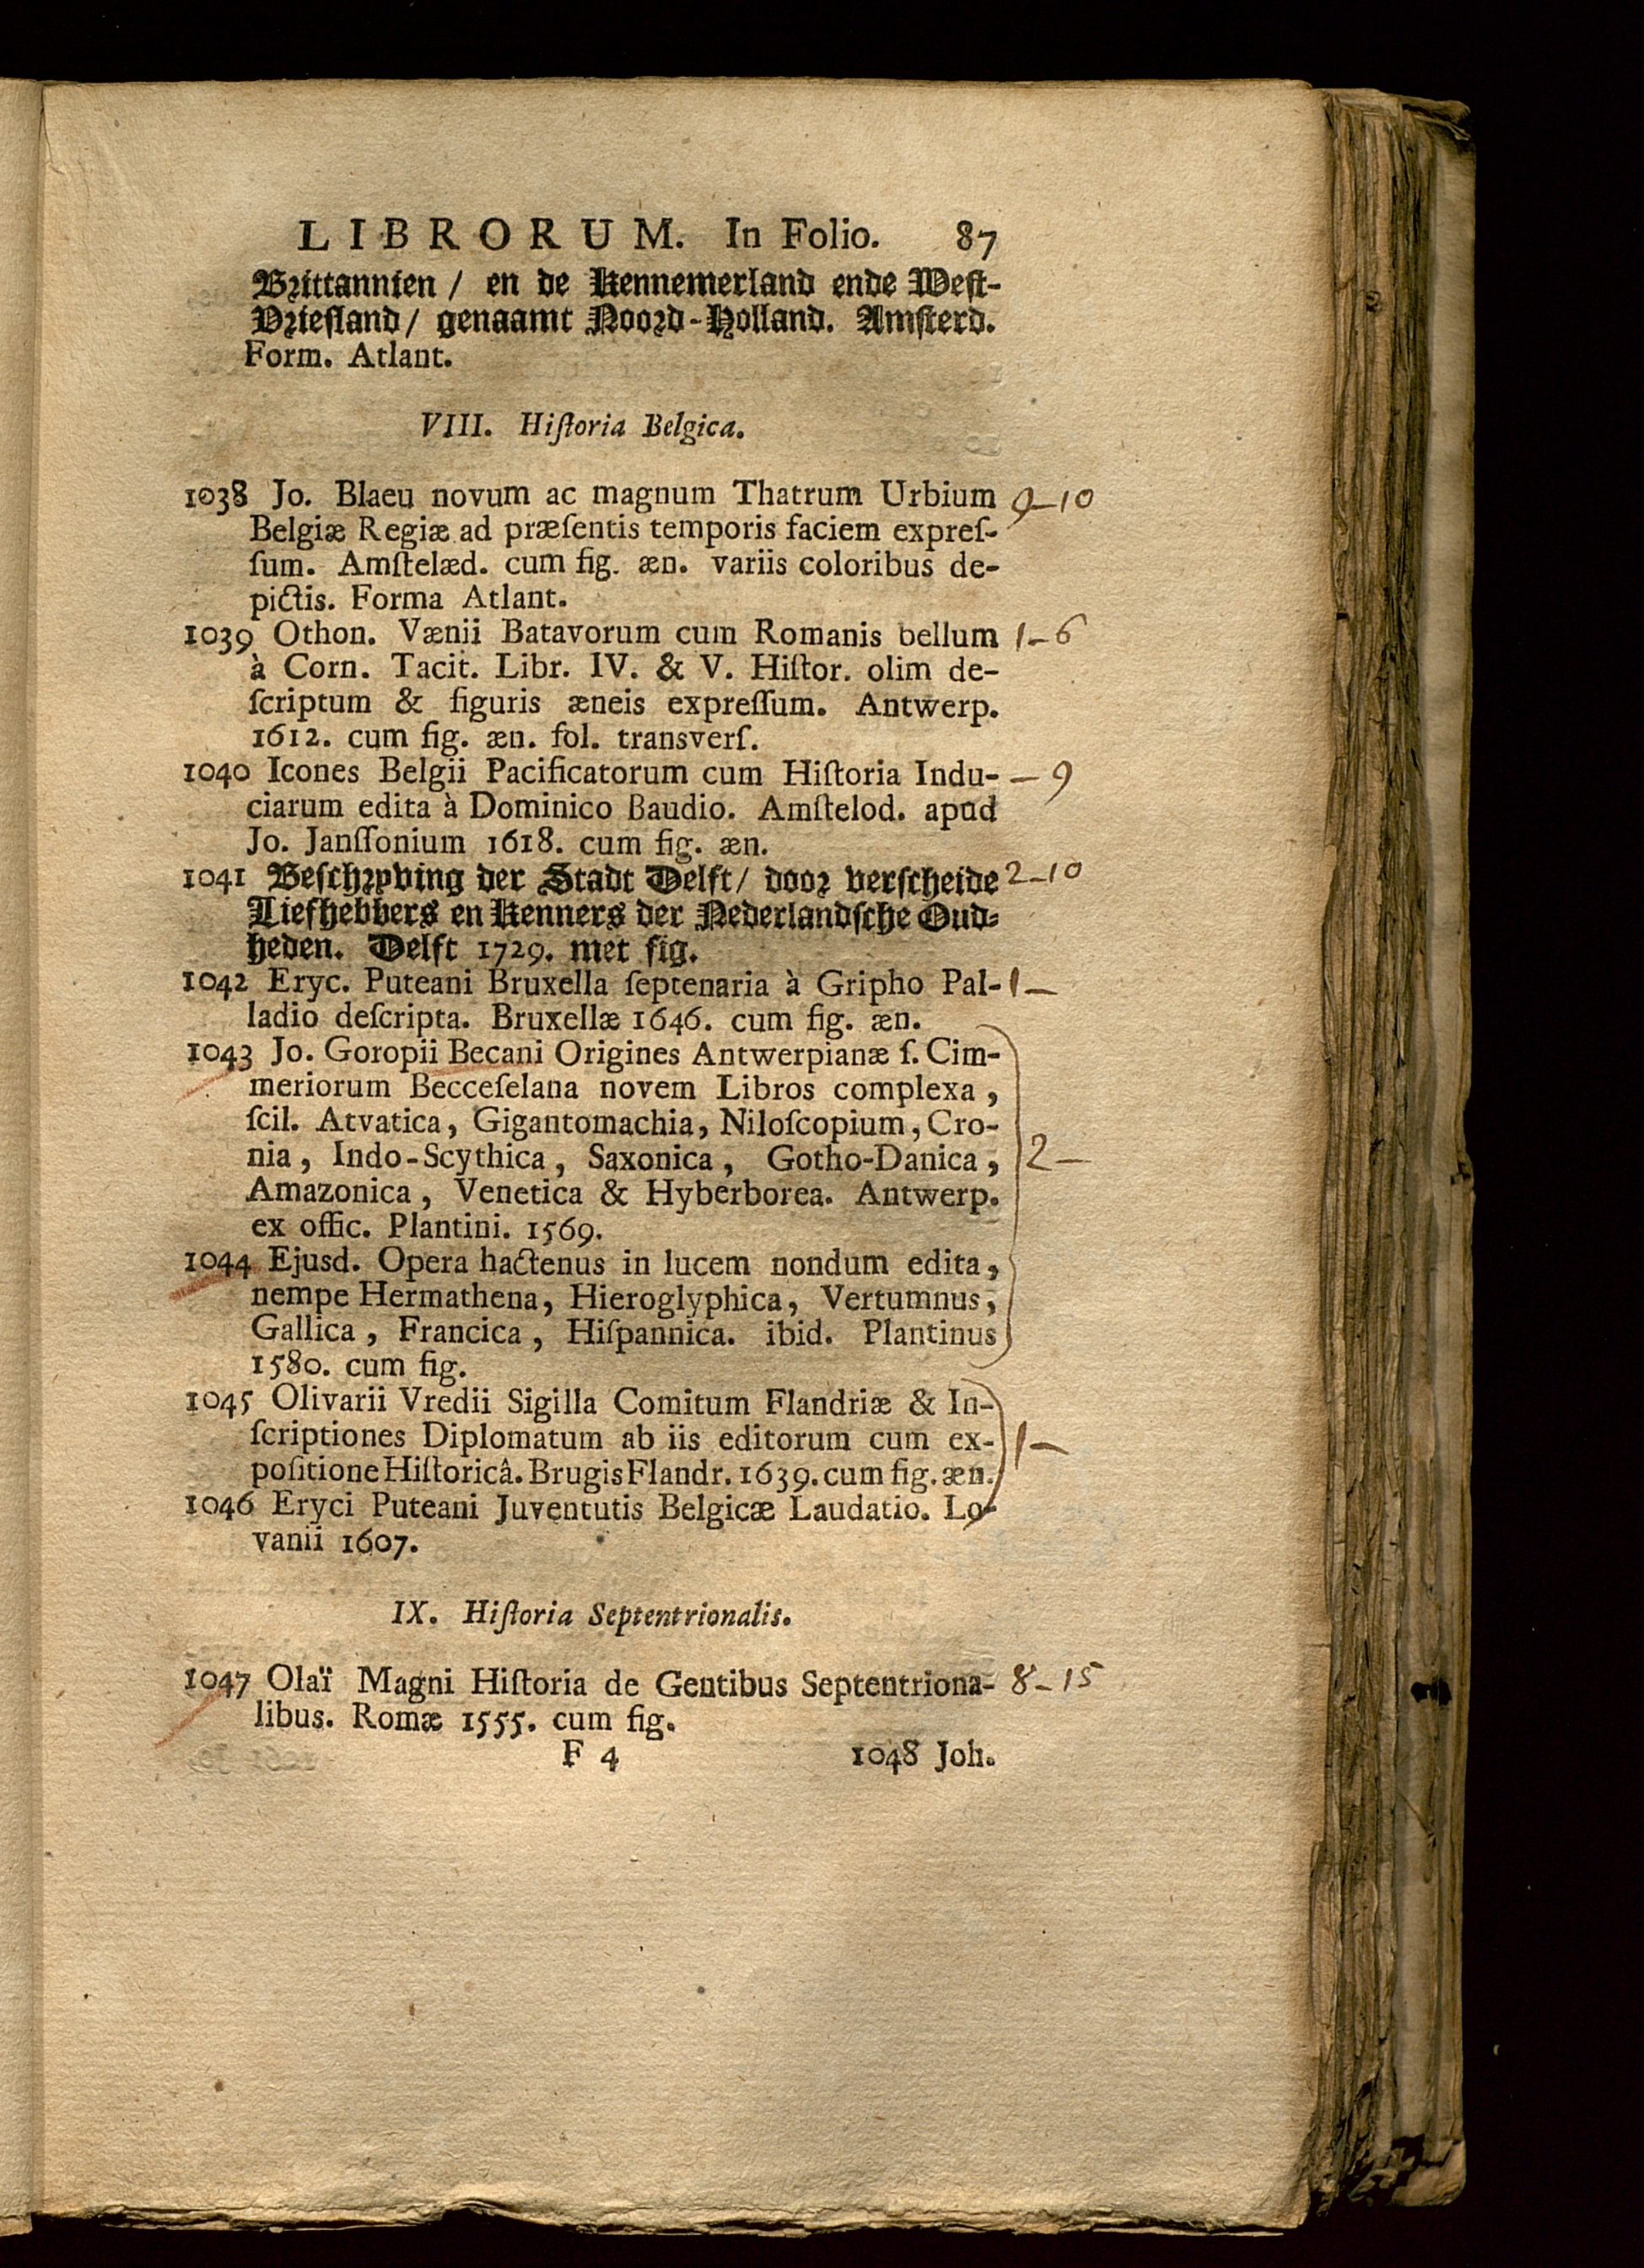 LIBRORUM. In Folio. 87
Brittannien / en de Kennemerland ende West-
Vriesland / genaamt Noord-Holland. Amsterd.
Form. Atlant.
VIII. Hiſtoria Belgica.
1038 Jo. Blaeu novum ac magnum Thatrum Urbium 9-10
Belgiæ Regiæ ad præſentis temporis faciem expreſ-
ſum. Amſtelæd. cum fig. æn. variis coloribus de-
pictis. Forma Atlant.
1039 Othon. Vænii Batavorum cum Romanis bellum 1-6
à Corn. Tacit. Libr. IV. & V. Hiſtor. olim de-
ſcriptum & figuris æneis expreſſum. Antwerp.
1612. cum fig. æn. fol. transverſ.
1040 Icones Belgii Pacificatorum cum Hiſtoria Indu- - 9
ciarum edita à Dominico Baudio. Amſtelod. apud
Jo. Janſſonium 1618. cum fig. æn.
1041 Beſchryving der Stadt Delft / door verſcheide 2-10
Liefhebbers en Kenners der Nederlandſche Oud-
heden. Delft 1729. met fig.
1042 Eryc. Puteani Bruxella ſeptenaria à Gripho Pal- 1-
ladio deſcripta. Bruxellæ 1646. cum fig. æn.
1043 Jo. Goropii Becani Origines Antwerpianæ ſ. Cim-
meriorum Becceſelana novem Libros complexa,
ſcil. Atvatica, Gigantomachia, Niloſcopium, Cro-
nia, Indo-Scythica, Saxonica, Gotho-Danica, 2-
Amazonica, Venetica & Hyberborea. Antwerp.
ex offic. Plantini. 1569.
1044 Ejusd. Opera hactenus in lucem nondum edita,
nempe Hermathena, Hieroglyphica, Vertumnus,
Gallica, Francica, Hiſpannica. ibid. Plantinus
1580. cum fig.
1045 Olivarii Vredii Sigilla Comitum Flandriæ & In-
ſcriptiones Diplomatum ab iis editorum cum ex- 1-
poſitione Hiſtoricâ. Brugis Flandr. 1639. cum fig. æn.
1046 Eryci Puteani Juventutis Belgicæ Laudatio. Lo-
vanii 1607.
IX. Hiſtoria Septentrionalis.
1047 Olaï Magni Hiſtoria de Gentibus Septentriona- 8-15
libus. Romæ 1555. cum fig.
F 4 1048 Joh.